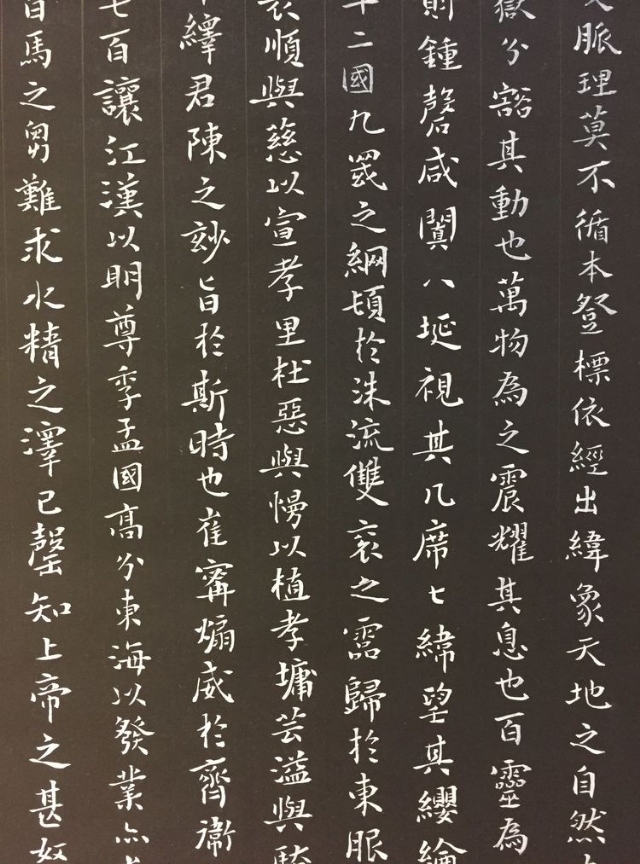 脈理莫不循本登標依經出緯象天地之自然
嶽分谿其動也萬物為之震耀其息也百靈為
則鍾磬咸闐八埏視其几席七緯望其纓
十二國九罭之網頓於洙流雙衮之霝歸於東服
衮順與慈以宣孝里杜惡與慢以植孝墉芸溢與
繹君陳之妙旨於斯時也崔甯煽威於齊衛
七百讓江漢以明尊季孟國高分東海以發業
百馬之芻難求水精之澤已罄知上帝之甚